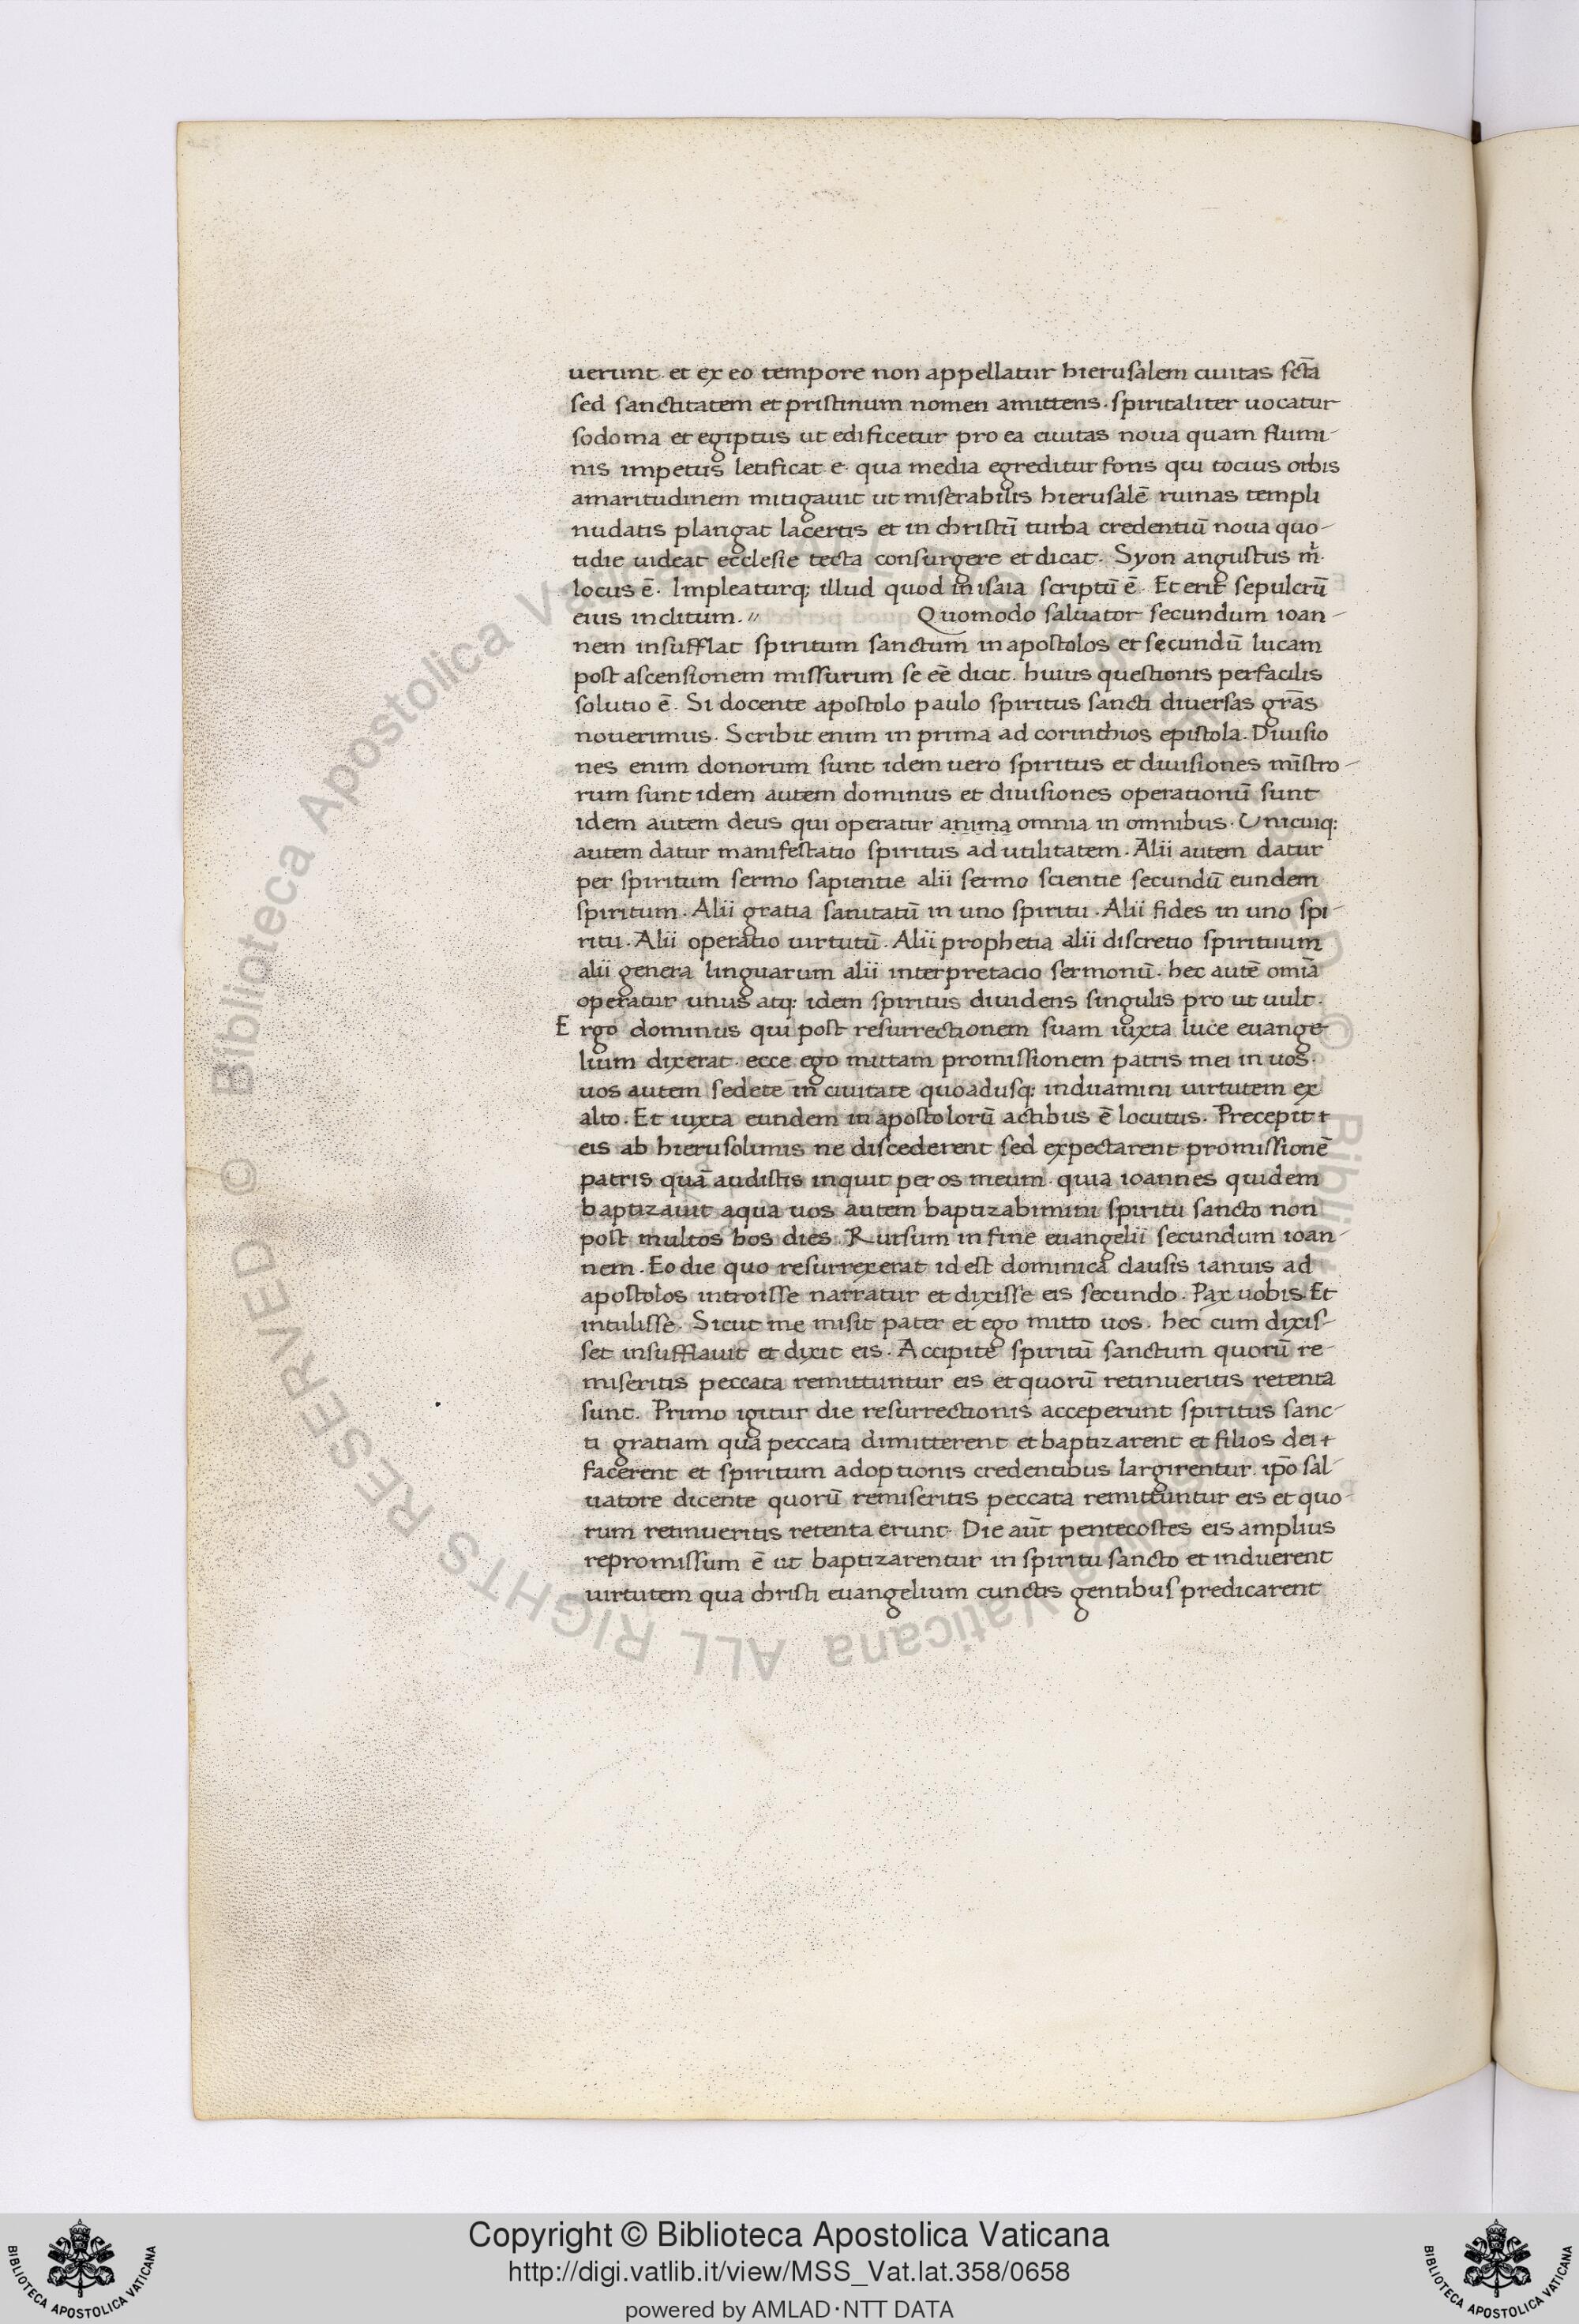 uerunt. et ex eo tempore non appellatur hierusalem ciuitas sctā
sed sanctitatem et pristinum nomen amittens. spiritaliter uocatur
sodoma et egiptus ut edificetur pro ea ciuitas noua quam flumi-
nis impetus letificat e. qua media egreditur fons qui tocius orbis
amaritudinem mitigauit ut miserabilis hierusalē ruinas templi
nudatis plangat lacertis et in christū turba credentiū noua quo-
tidie uideat ecclesie tecta consurgere et dicat. Syon angustus m̄.
locus ē. Impleaturq; illud quod in isaia scriptū ē. Et erit sepulcrū
eius inclitum. // Quomodo saluator secundum ioan-
nem insufflat spiritum sanctum in apostolos et secundū lucam
post ascensionem missurum se eē dicit. huius questionis perfacilis
solutio ē. Si docente apostolo paulo spiritus sancti diuersas grās
nouerimus. Scribit enim in prima ad corinthios epistola. Diuisio
nes enim donorum sunt idem uero spiritus et diuisiones mīstro-
rum sunt idem autem dominus et diuisiones operationū sunt
idem autem deus qui operatur anima omnia in omnibus. Unicuiq:
autem datur manifestatio spiritus ad utilitatem. Alii autem datur
per spiritum sermo sapientie alii sermo scientie secundū eundem
spiritum. Alii gratia sanitatū in uno spiritu. Alii fides in uno spi-
ritu. Alii operatio uirtutū. Alii prophetia alii discretio spirituum
alii genera linguarum alii interpretacio sermonū. hec autē omīa
operatur unus atq: idem spiritus diuidens singulis pro ut uult.
Ergo dominus qui post resurrectionem suam iuxta luce euange-
lium dixerat. ecce ego mittam promissionem patris mei in uos.
uos autem sedete in ciuitate quoadusq: induamini uirtutem ex
alto. Et iuxta eundem in apostolorū actibus ē locutus. Precepit
eis ab hierusolimis ne discederent sed expectarent promissionē
patris quā audistis inquit per os meum. quia ioannes quidem
baptizauit aqua uos autem baptizabimini spiritu sancto non
post multos hos dies. Rursum in fine euangelii secundum ioan-
nem. Eo die quo resurrexerat id est dominica clausis ianuis ad
apostolos introisse narratur et dixisse eis secundo. Pax uobis. Et
intulisse. Sicut me misit pater et ego mitto uos. hec cum dixis-
set insufflauit et dixit eis. Accipite spiritū sanctum quorū re-
miseritis peccata remittuntur eis et quorū retinueritis retenta
sunt. Primo igitur die resurrectionis acceperunt spiritus sanc-
ti gratiam qua peccata dimitterent et baptizarent et filios dei
facerent et spiritum adoptionis credentibus largirentur. ip̄o sal-
uatore dicente quorū remiseritis peccata remittuntur eis et quo-
rum retinueritis retenta erunt. Die aūt pentecostes eis amplius
repromissum ē ut baptizarentur in spiritu sancto et induerent
uirtutem qua christi euangelium cunctis gentibus predicarent
© Biblioteca Apostolica Vaticana ALL RIGHTS RESERVED
Copyright © Biblioteca Apostolica Vaticana
http://digi.vatlib.it/view/MSS_Vat.lat.358/0658
powered by AMLAD·NTT DATA
BIBLIOTECA APOSTOLICA VATICANA
BIBLIOTECA APOSTOLICA VATICANA